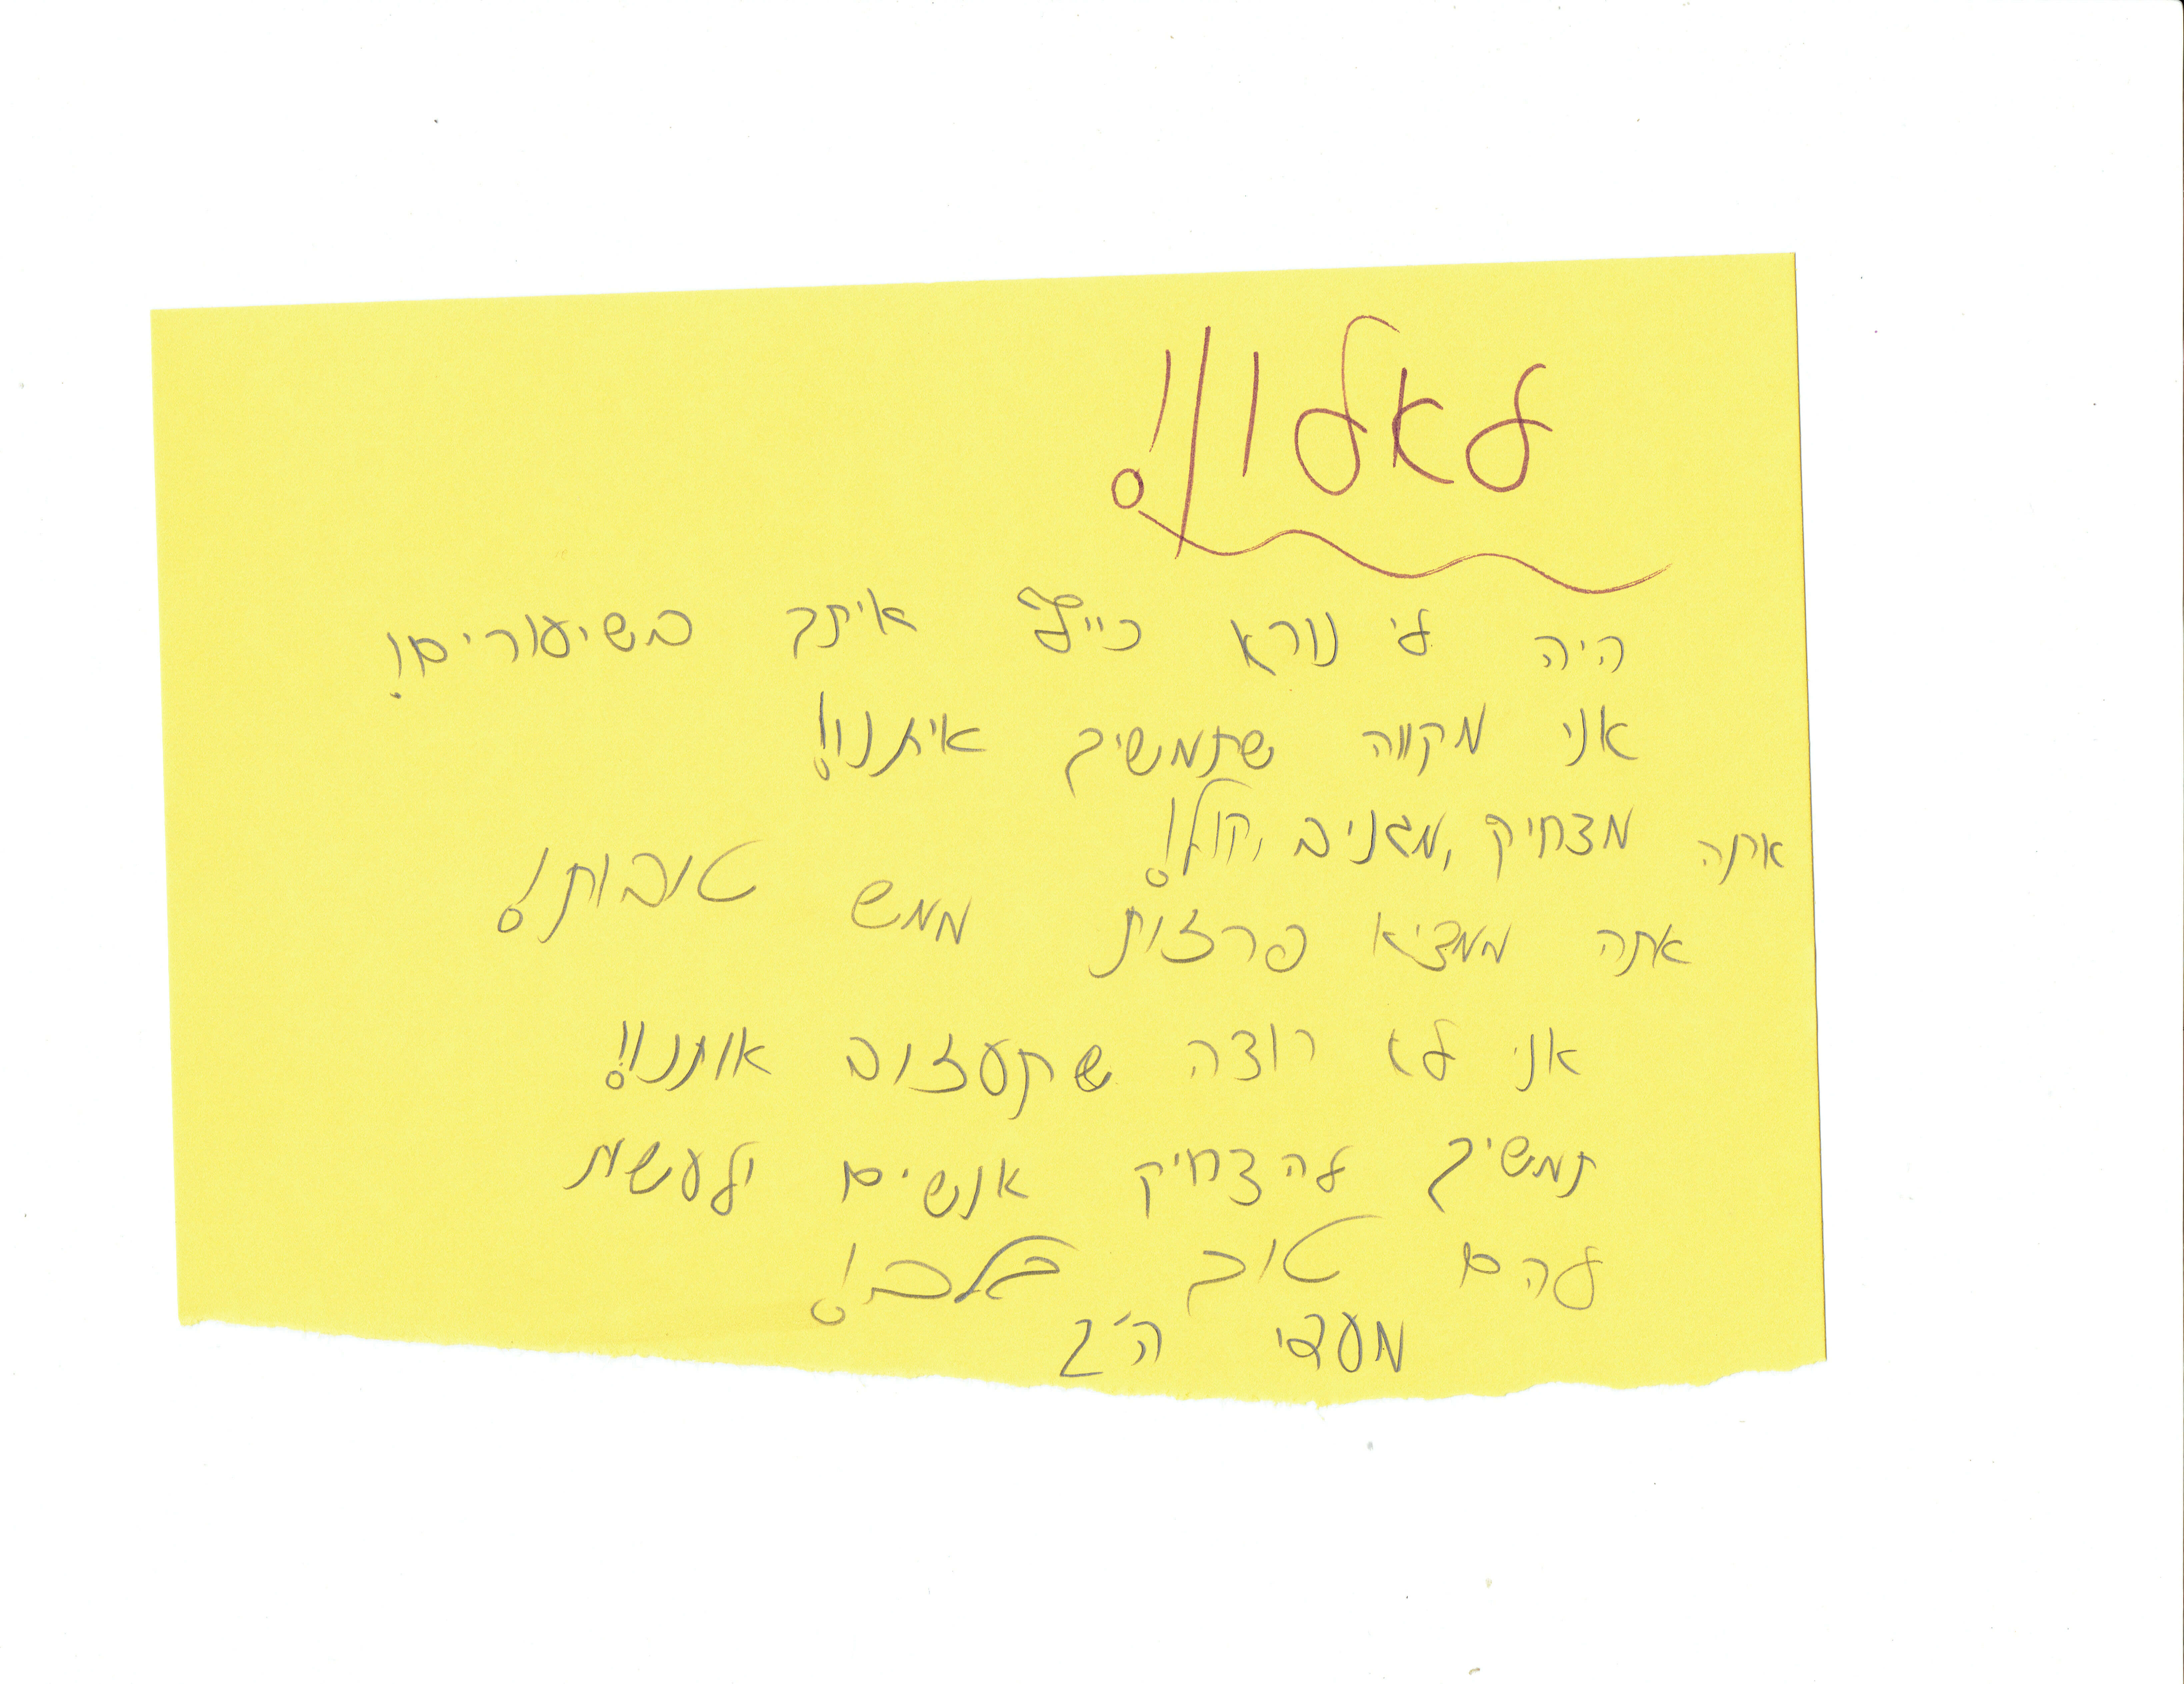 לאלון!
היה לי נורא כייף איתך בשיעורים!
אני מקווה שתמשיך איתנו!
אתה מצחיק, מגניב, קול!
אתה ממציא פרזות ממש טובות!
אני לא רוצה שתעזוב אותנו!
תמשיך להצחיק אנשים ולעשות
להם טוב בלב!
ה'2